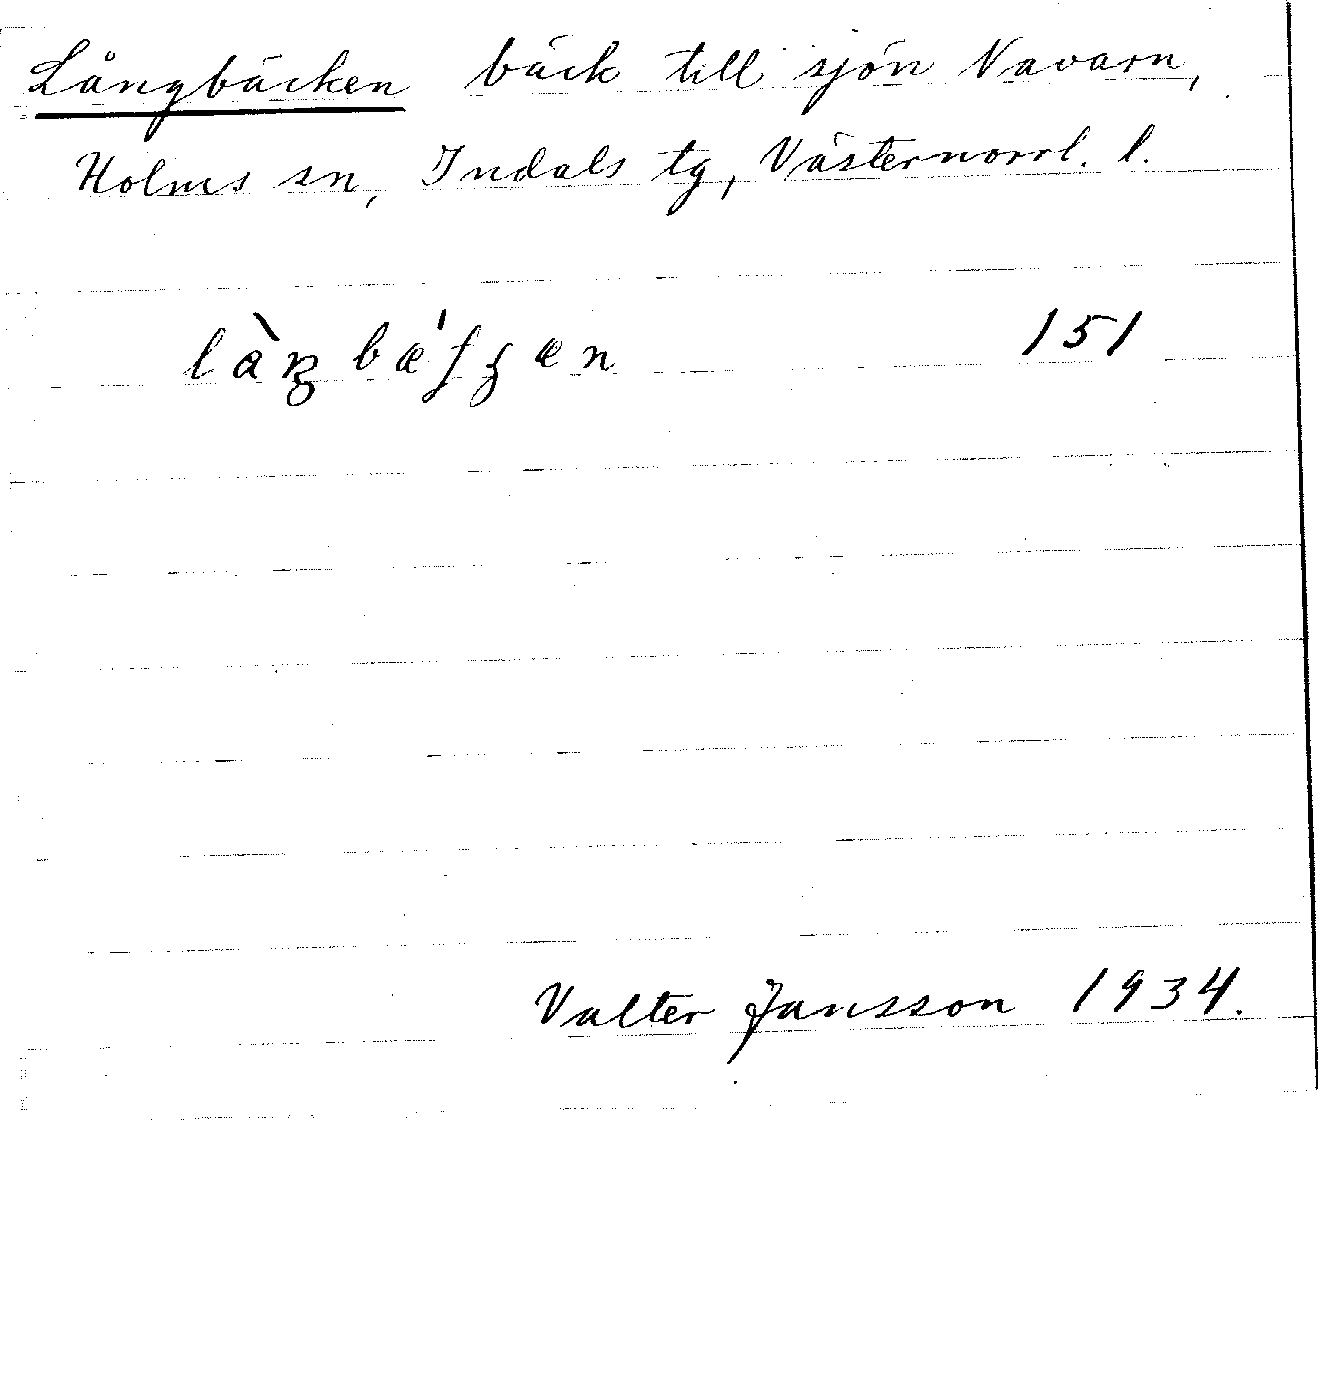 Långbäcken bäck till sjön Navarn,
Holms sn, Indals tg, Västernorrl. l.
151
Valter Jansson 1934.